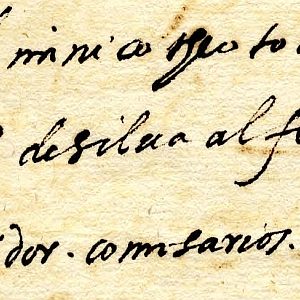 minico theoto
desilua al f
dor. comisarios.